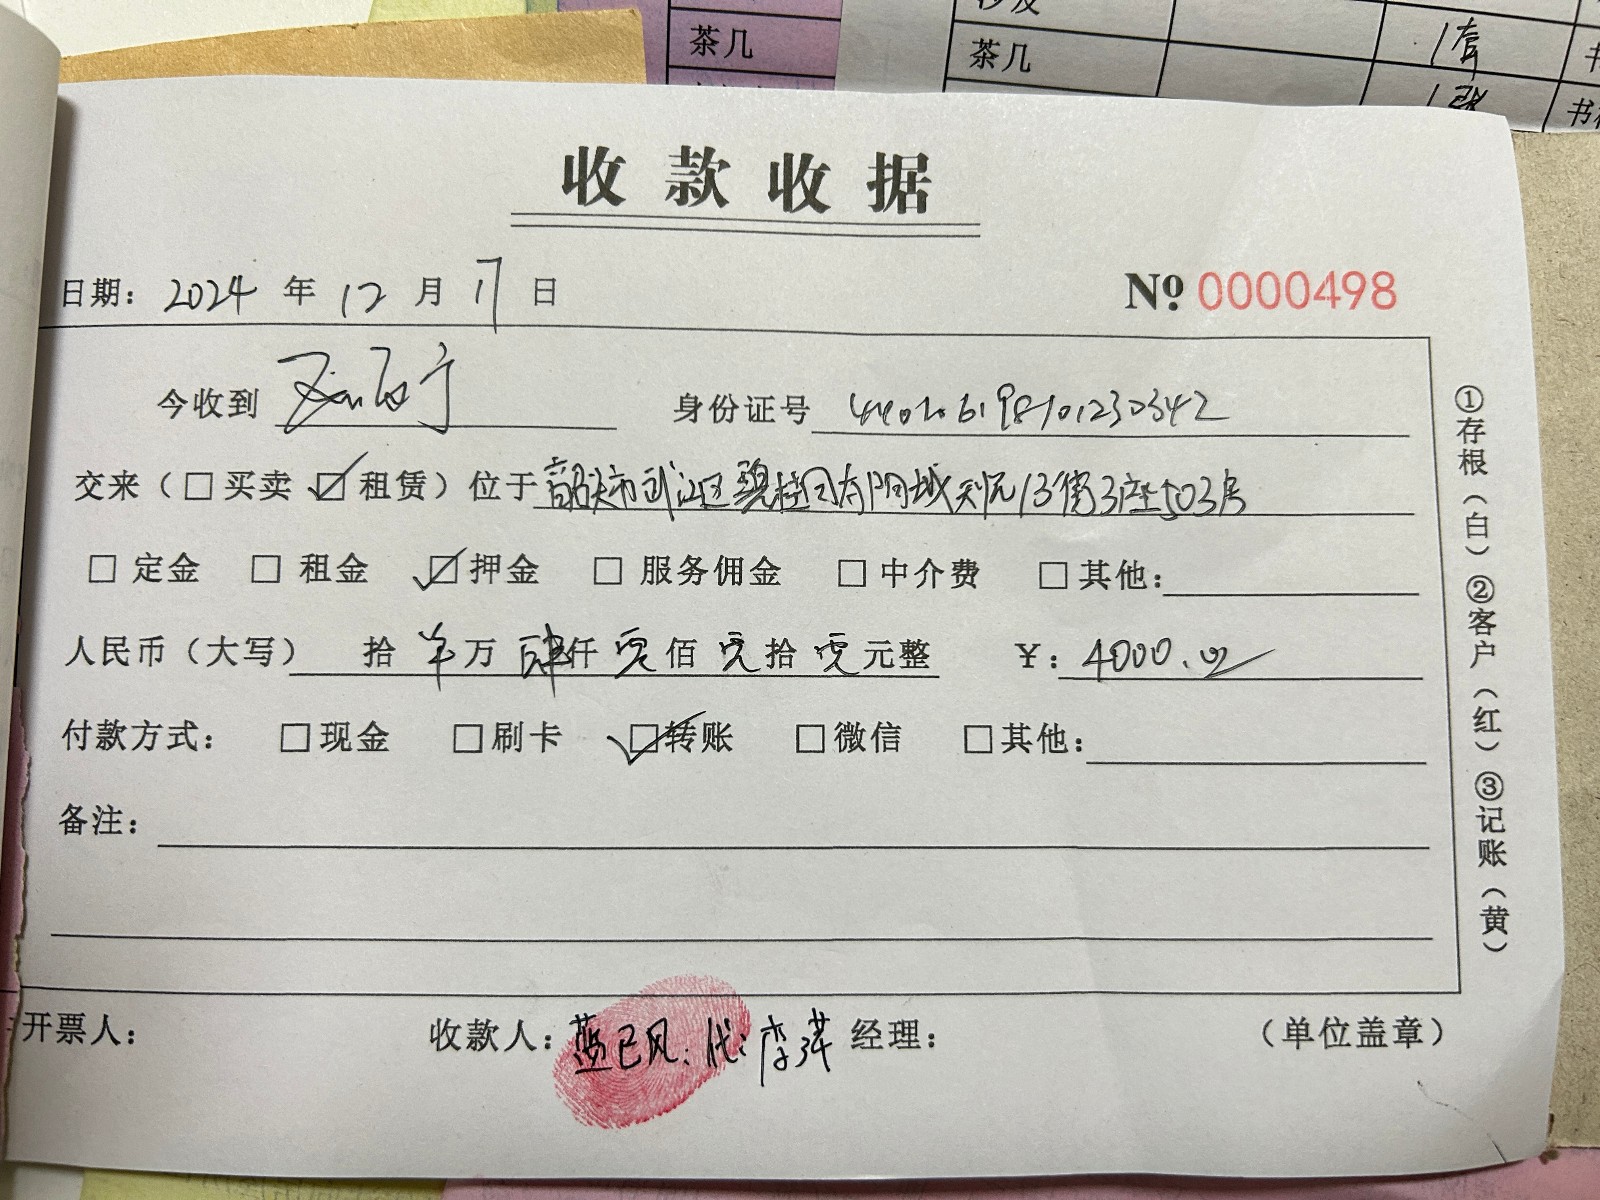 茶几
沙发
茶几 1套
1张 书
收款收据
日期: 2024 年 12 月 17 日 № 0000498
今收到 身份证号
交来(□买卖 ☑租赁)位于韶关市武江区碧桂园太阳城天悦13街3座503房
□ 定金 □ 租金 ☑ 押金 □ 服务佣金 □ 中介费 □ 其他:
人民币(大写) 拾 羊 万 肆 仟 零 佰 零 拾 零 元整 ¥: 4000.00
付款方式: □ 现金 □ 刷卡 ☑ 转账 □ 微信 □ 其他:
备注:
开票人: 收款人: 蓝已风: 代: 李萍 经理: (单位盖章)
①存根(白)②客户(红)③记账(黄)